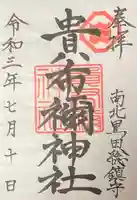 奉拝
南北星田総鎮守
貴布禰神社
令和三年七月十日